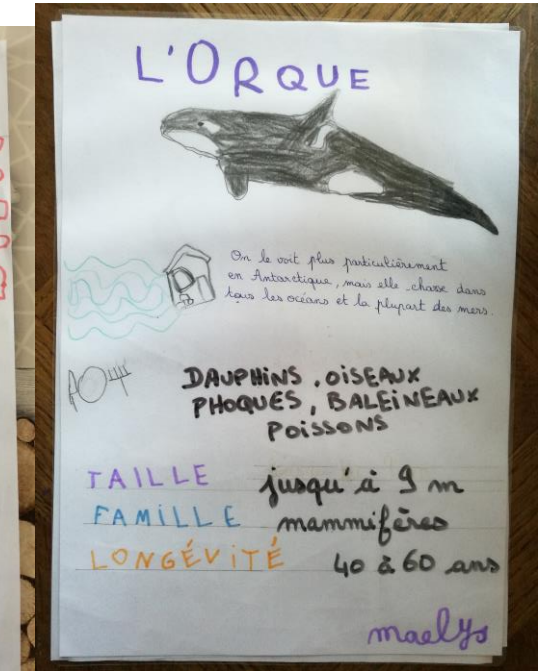 L'ORQUE
On le voit plus particulièrement
en Antarctique, mais elle chasse dans
tous les océans et la plupart des mers.
DAUPHINS, OISEAUX
PHOQUES, BALEINEAUX
POISSONS
TAILLE jusqu'à 9 m
FAMILLE mammifères
LONGÉVITÉ 40 à 60 ans
maelys